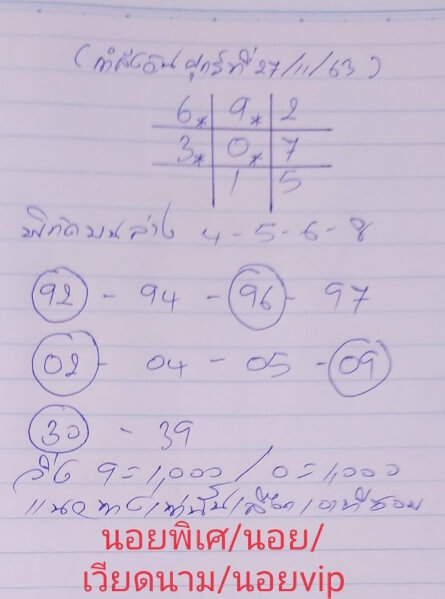 ( กำลังวัน ศุกร์ที่ 27/11/63 )
6* 9* 2
3* 0* 7
1 5
พิกัดบนล่าง 4-5-6-8
92 - 94 - 96 - 97
02 - 04 - 05 - 09
30 - 39
วิ่ง 9=1,000 / 0=1,000
แนวทางเท่านั้นเลือกเอาที่ชอบ
นอยพิเศ/นอย/
เวียดนาม/นอยvip